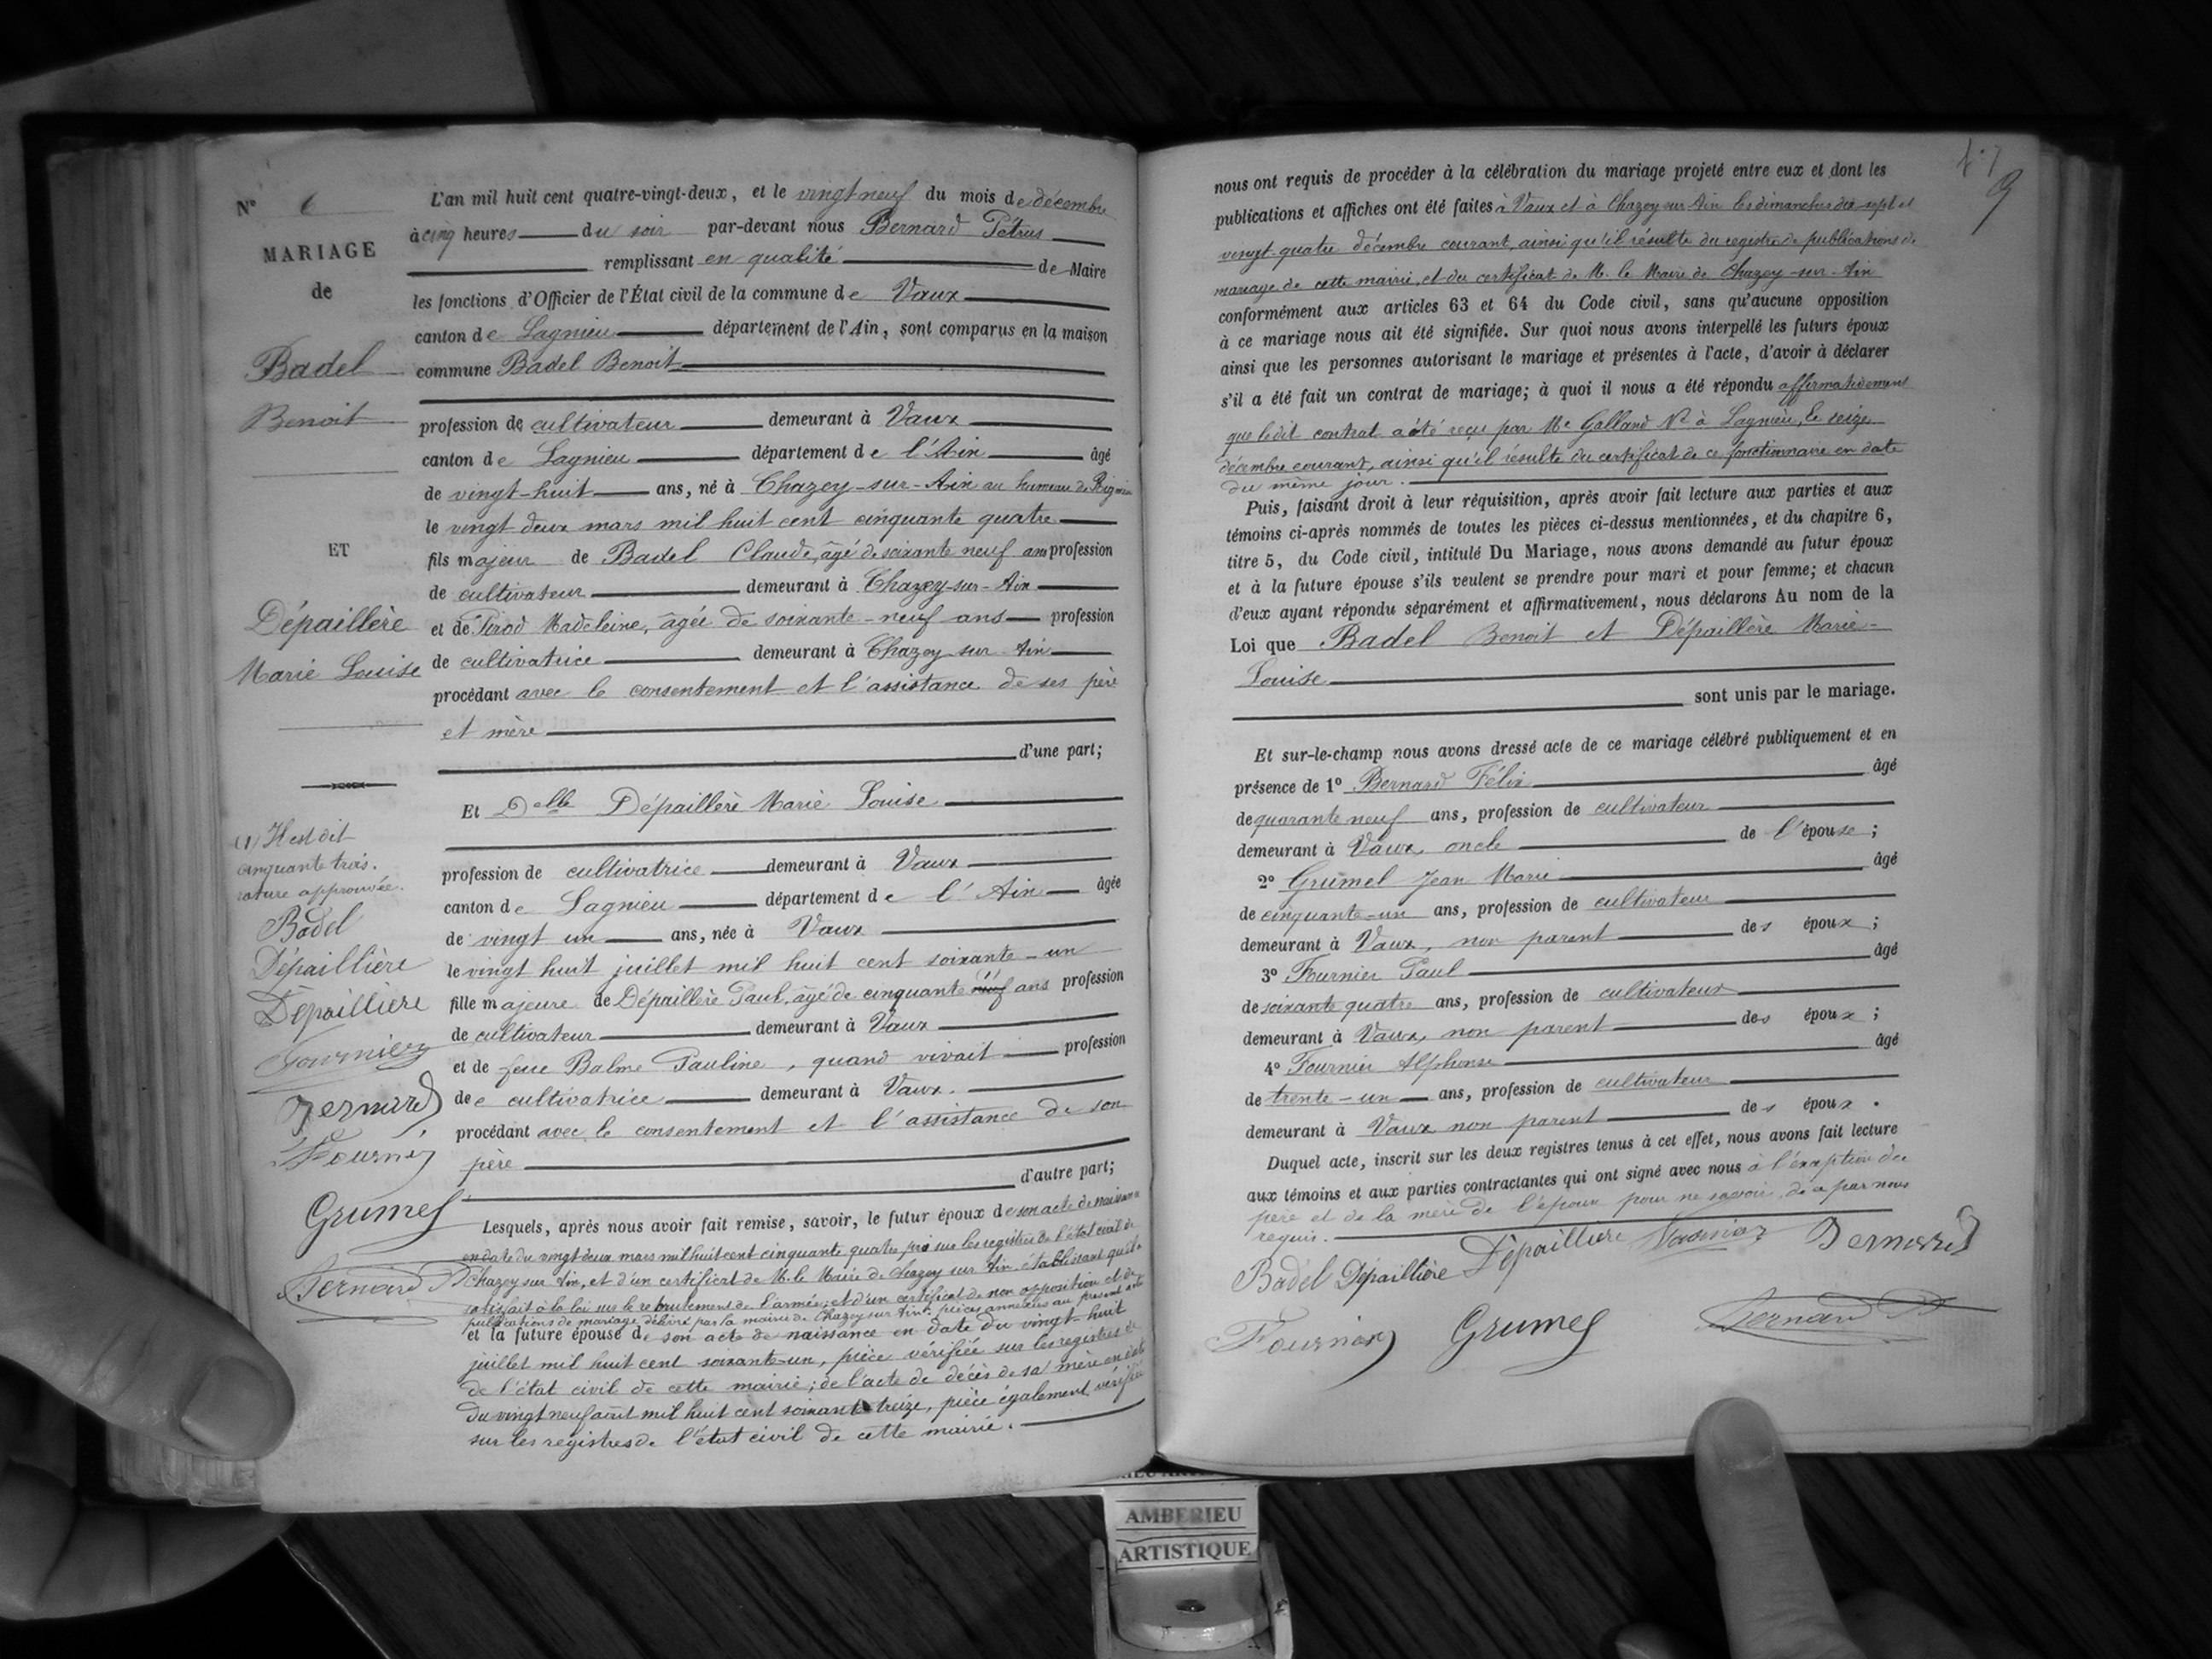 N° 6
MARIAGE
de
Badel
Benoit
ET
Dépaillère
Marie Louise
(1) Il est dit
cinquante trois.
rature approuvée.
Badel
Dépaillière
Dépaillière
Fournier
Bernard
Fournier
Grumel
Bernard P
L'an mil huit cent quatre-vingt-deux, et le vingt neuf du mois de décembre
à cinq heures du soir par-devant nous Bernard Pétrus
remplissant en qualité de Maire
les fonctions d'Officier de l'État civil de la commune de Vaux
canton de Lagnieu département de l'Ain, sont comparus en la maison
commune Badel Benoit
profession de cultivateur demeurant à Vaux
canton de Lagnieu département de l'Ain âgé
de vingt-huit ans, né à Chazey-sur-Ain au hameau de
le vingt deux mars mil huit cent cinquante quatre
fils majeur de Badel Claude, âgé de soixante neuf ans profession
de cultivateur demeurant à Chazey-sur-Ain
et de Pirod Madeleine, âgée de soixante-neuf ans profession
de cultivatrice demeurant à Chazey-sur-Ain
procédant avec le consentement et l'assistance de ses père
et mère
d'une part;
Et Delle Dépaillère Marie Louise
profession de cultivatrice demeurant à Vaux
canton de Lagnieu département de l'Ain âgée
de vingt un ans, née à Vaux
le vingt huit juillet mil huit cent soixante-un
fille majeure de Dépaillère Paul, âgé de cinquante neuf ans profession
de cultivateur demeurant à Vaux
et de feue Balme Pauline, quand vivait profession
de cultivatrice demeurant à Vaux.
procédant avec le consentement et l'assistance de son
père
d'autre part;
Lesquels, après nous avoir fait remise, savoir, le futur époux de son acte de naissance
en date du vingt deux mars mil huit cent cinquante quatre pris sur les registres de l'état civil de
Chazey sur Ain, et d'un certificat de M. le Maire de Chazey sur Ain établissant qu'il a
satisfait à la loi sur le recrutement de l'armée; et d'un certificat de non opposition et de
publications de mariage délivré par la mairie de Chazey sur Ain; pièces annexées au présent acte
et la future épouse de son acte de naissance en date du vingt-huit
juillet mil huit cent soixante-un, pièce vérifiée sur les registres de
de l'état civil de cette mairie; de l'acte de décès de sa mère en date
du vingt neuf août mil huit cent soixante treize, pièce également vérifiée
sur les registres de l'état civil de cette mairie.
9
nous ont requis de procéder à la célébration du mariage projeté entre eux et dont les
publications et affiches ont été faites à Vaux et à Chazey sur Ain les dimanches dix-sept et
vingt-quatre décembre courant, ainsi qu'il résulte du registre de publications de
mariage de cette mairie, et du certificat de M. le Maire de Chazey-sur-Ain
conformément aux articles 63 et 64 du Code civil, sans qu'aucune opposition
à ce mariage nous ait été signifiée. Sur quoi nous avons interpellé les futurs époux
ainsi que les personnes autorisant le mariage et présentes à l'acte, d'avoir à déclarer
s'il a été fait un contrat de mariage; à quoi il nous a été répondu affirmativement
que ledit contrat a été reçu par Me Galland Nre à Lagnieu, le seize
décembre courant, ainsi qu'il résulte du certificat de ce fonctionnaire en date
du même jour.
Puis, faisant droit à leur réquisition, après avoir fait lecture aux parties et aux
témoins ci-après nommés de toutes les pièces ci-dessus mentionnées, et du chapitre 6,
titre 5, du Code civil, intitulé Du Mariage, nous avons demandé au futur époux
et à la future épouse s'ils veulent se prendre pour mari et pour femme; et chacun
d'eux ayant répondu séparément et affirmativement, nous déclarons Au nom de la
Loi que Badel Benoit et Dépaillère Marie-
Louise
sont unis par le mariage.
Et sur-le-champ nous avons dressé acte de ce mariage célébré publiquement et en
présence de 1° Bernard Félix âgé
de quarante neuf ans, profession de cultivateur
demeurant à Vaux, oncle de l'épouse;
2° Grumel Jean Marie âgé
de cinquante-un ans, profession de cultivateur
demeurant à Vaux, non parent des époux;
3° Fournier Paul âgé
de soixante quatre ans, profession de cultivateur
demeurant à Vaux, non parent des époux;
4° Fournier Alphonse âgé
de trente-un ans, profession de cultivateur
demeurant à Vaux non parent des époux.
Duquel acte, inscrit sur les deux registres tenus à cet effet, nous avons fait lecture
aux témoins et aux parties contractantes qui ont signé avec nous à l'exception du
père et de la mère de l'époux pour ne savoir, de ce par nous
requis.
Badel Dépaillière Dépaillière Fournier Bernard
Fournier Grumel Bernard P
AMBERIEU
ARTISTIQUE